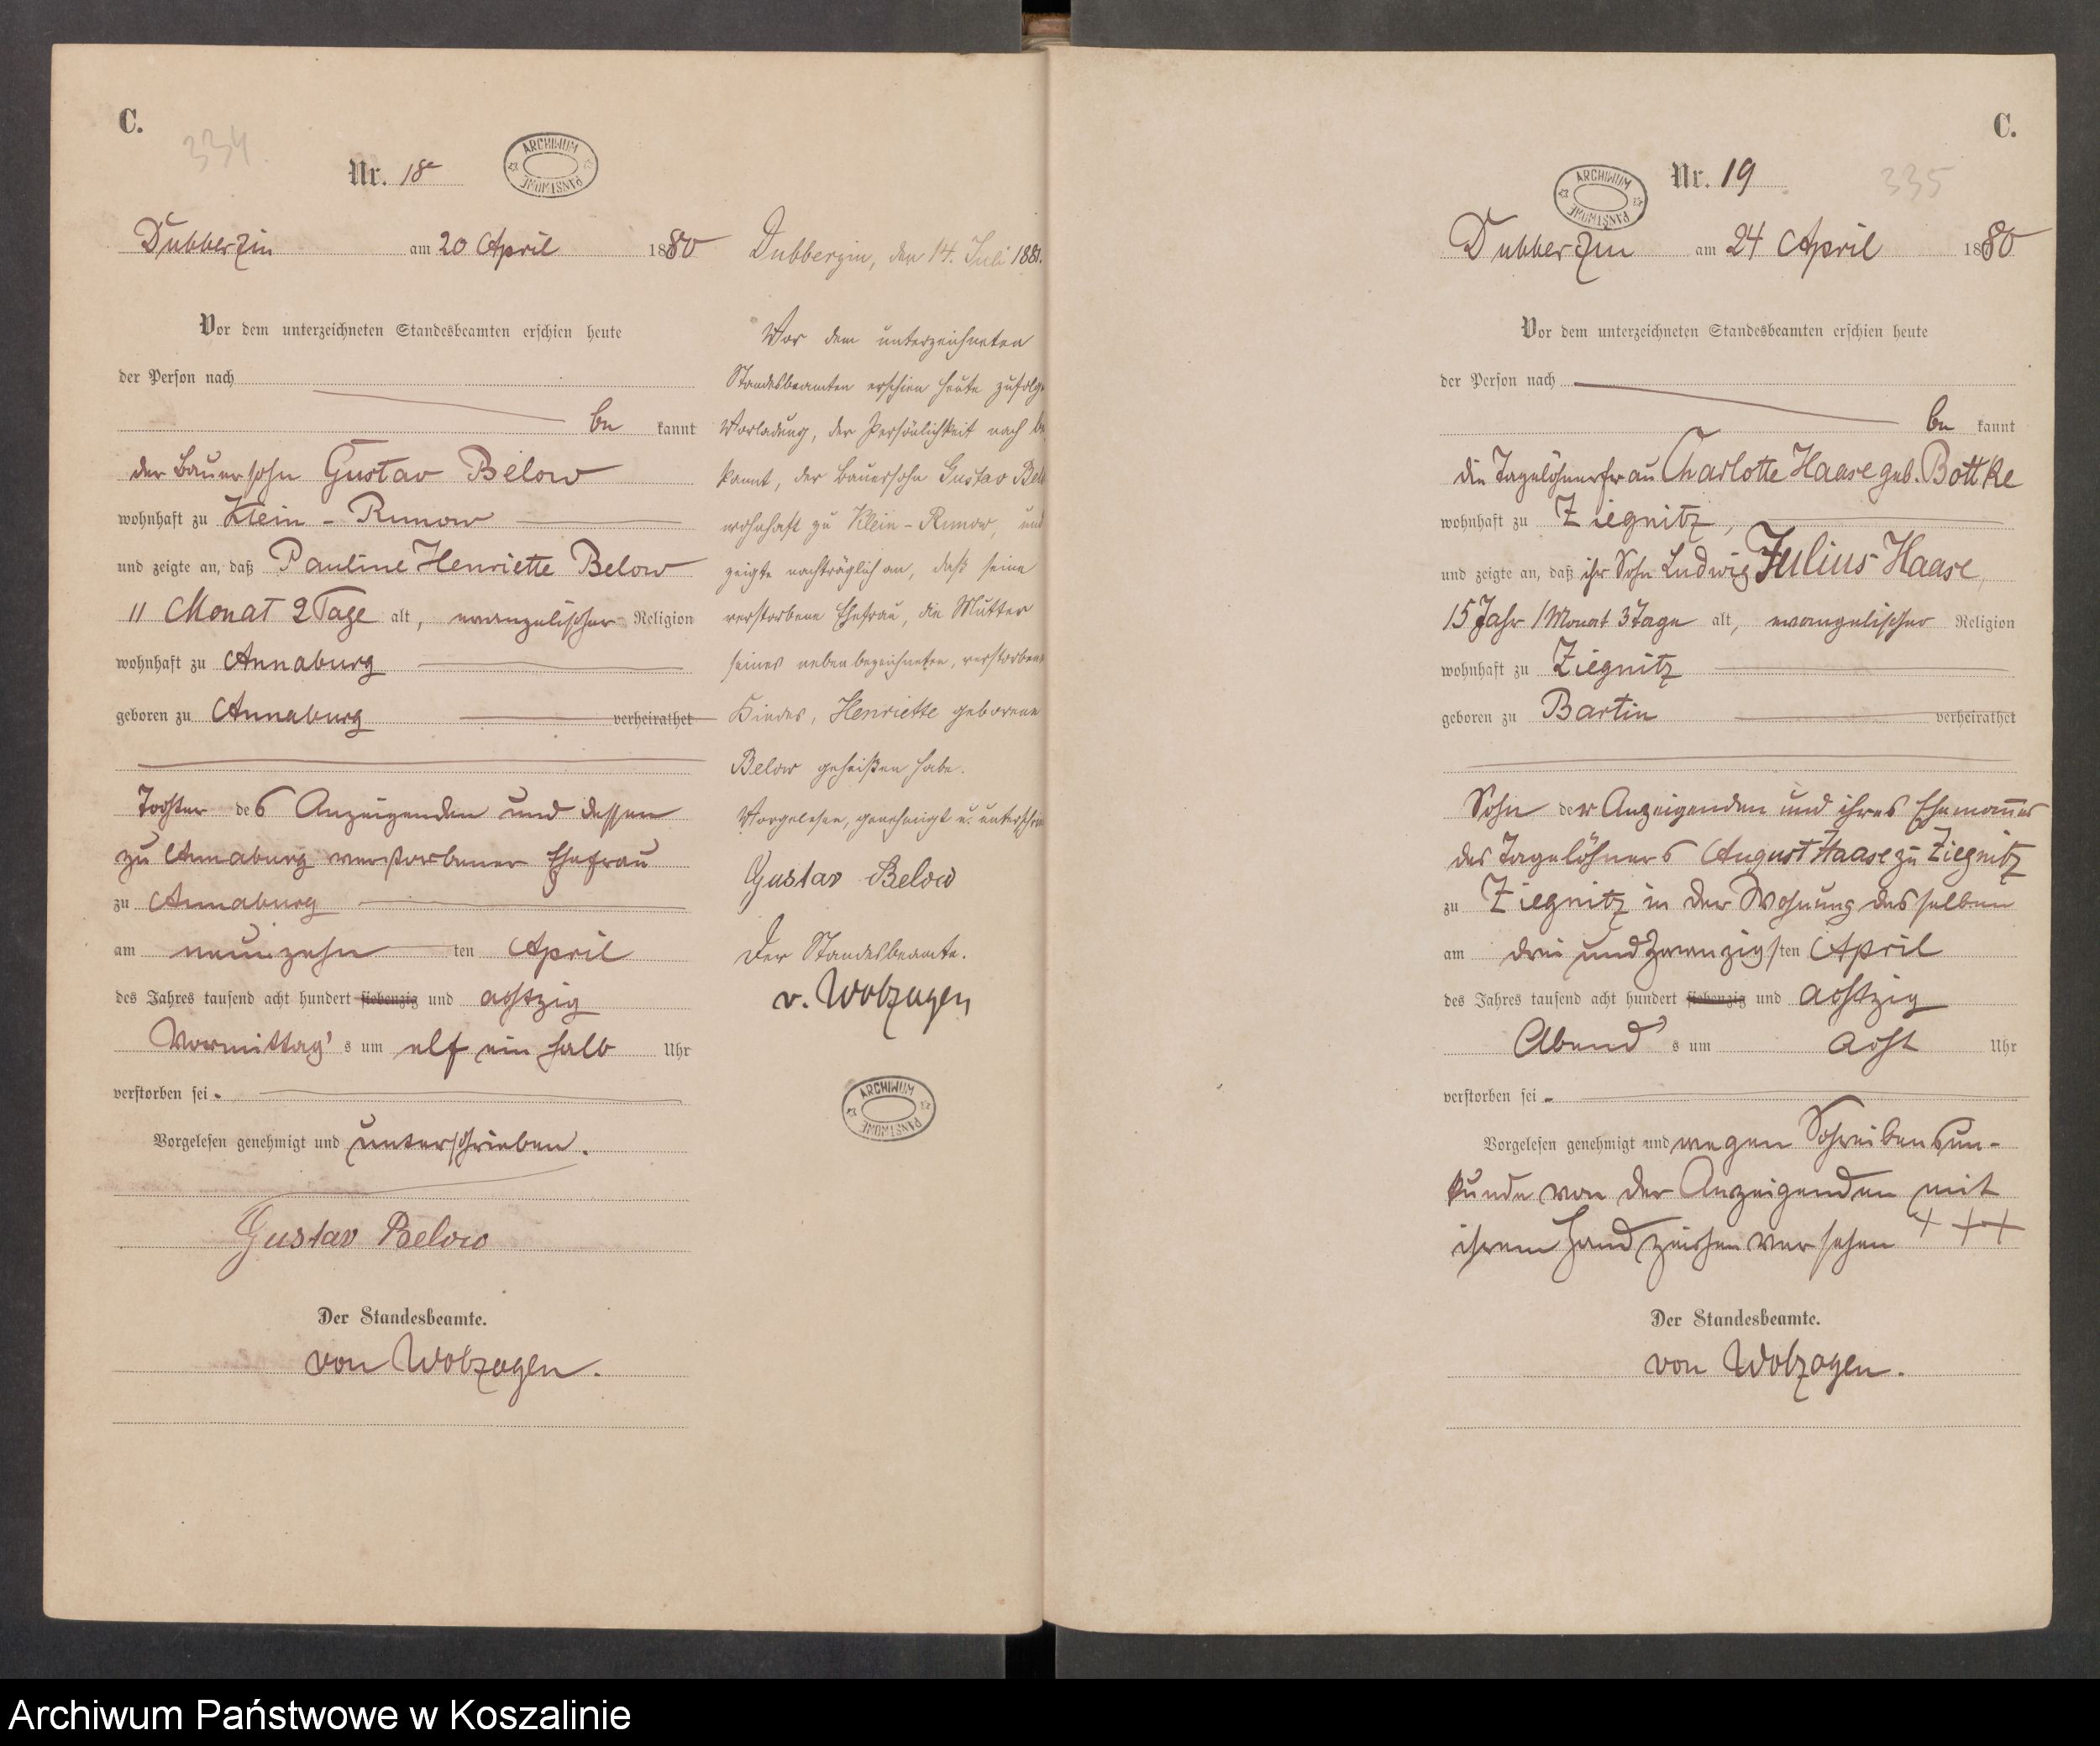 C.
334.
Nr. 18
ARCHIWUM PAŃSTWOWE
Dubberzin am 20 April 1880
Vor dem unterzeichneten Standesbeamten erschien heute
der Person nach
be kannt
der Bauersohn Gustav Below
wohnhaft zu Klein - Runow
und zeigte an, daß Pauline Henriette Below
11 Monat 2 Tage alt, evangelischer Religion
wohnhaft zu Annaburg
geboren zu Annaburg verheirathet
Tochter des Anzeigenden und dessen
zu Annaburg verstorbener Ehefrau
zu Annaburg
am neunzehn ten April
des Jahres tausend acht hundert siebenzig und achtzig
Vormittag's um elf ein halb Uhr
verstorben sei.
Vorgelesen genehmigt und unterschrieben.
Gustav Below
Der Standesbeamte.
von Wolzogen.
Dubberzin, den 14. Juli 1881.
Vor dem unterzeichneten
Standesbeamten erschien heute zufolge
Vorladung, der Persönlichkeit nach be
kannt, der Bauersohn Gustav Bel
wohnhaft zu Klein-Runow, und
zeigte nachträglich an, daß seine
verstorbene Ehefrau, die Mutter
seines nebenbezeichneten, verstorbene
Kindes, Henriette geborene
Below geheißen habe.
Vorgelesen, genehmigt u. unterschrie
Gustav Below
Der Standesbeamte.
v. Wolzogen
ARCHIWUM PAŃSTWOWE
C.
ARCHIWUM PAŃSTWOWE
Nr. 19
335
Dubberzin am 24 April 1880
Vor dem unterzeichneten Standesbeamten erschien heute
der Person nach
be kannt
die Tagelöhnerfrau Charlotte Haase geb. Bottke
wohnhaft zu Ziegnitz,
und zeigte an, daß ihr Sohn Ludwig Julius Haase,
15 Jahr 1 Monat 3 Tage alt, evangelischer Religion
wohnhaft zu Ziegnitz
geboren zu Bartin verheirathet
Sohn der Anzeigenden und ihres Ehemannes
des Tagelöhners August Haase zu Ziegnitz
zu Ziegnitz in der Wohnung desselben
am drei und zwanzigsten April
des Jahres tausend acht hundert siebenzig und achtzig
Abend's um acht Uhr
verstorben sei.
Vorgelesen genehmigt und wegen Schreibensun-
kunde von der Anzeigenden mit
ihrem Handzeichen versehen +++
Der Standesbeamte.
von Wolzogen.
Archiwum Państwowe w Koszalinie